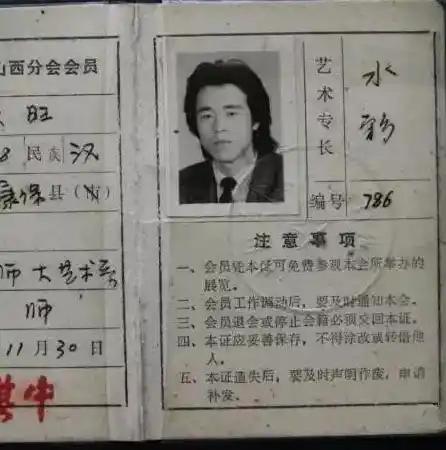 山西分会会员
旺
民族 汉
康保县（市）
师大艺术系
师
11月30日
其中
艺术专长
水彩
编号 786
注意事项
一、会员凭本证可免费参观本会所举办的
展览。
二、会员工作调动后，要及时通知本会。
三、会员退会或停止会籍必须交回本证。
四、本证应要善保存，不得涂改或转借他
人。
五、本证遗失后，要及时声明作废，申请
补发。